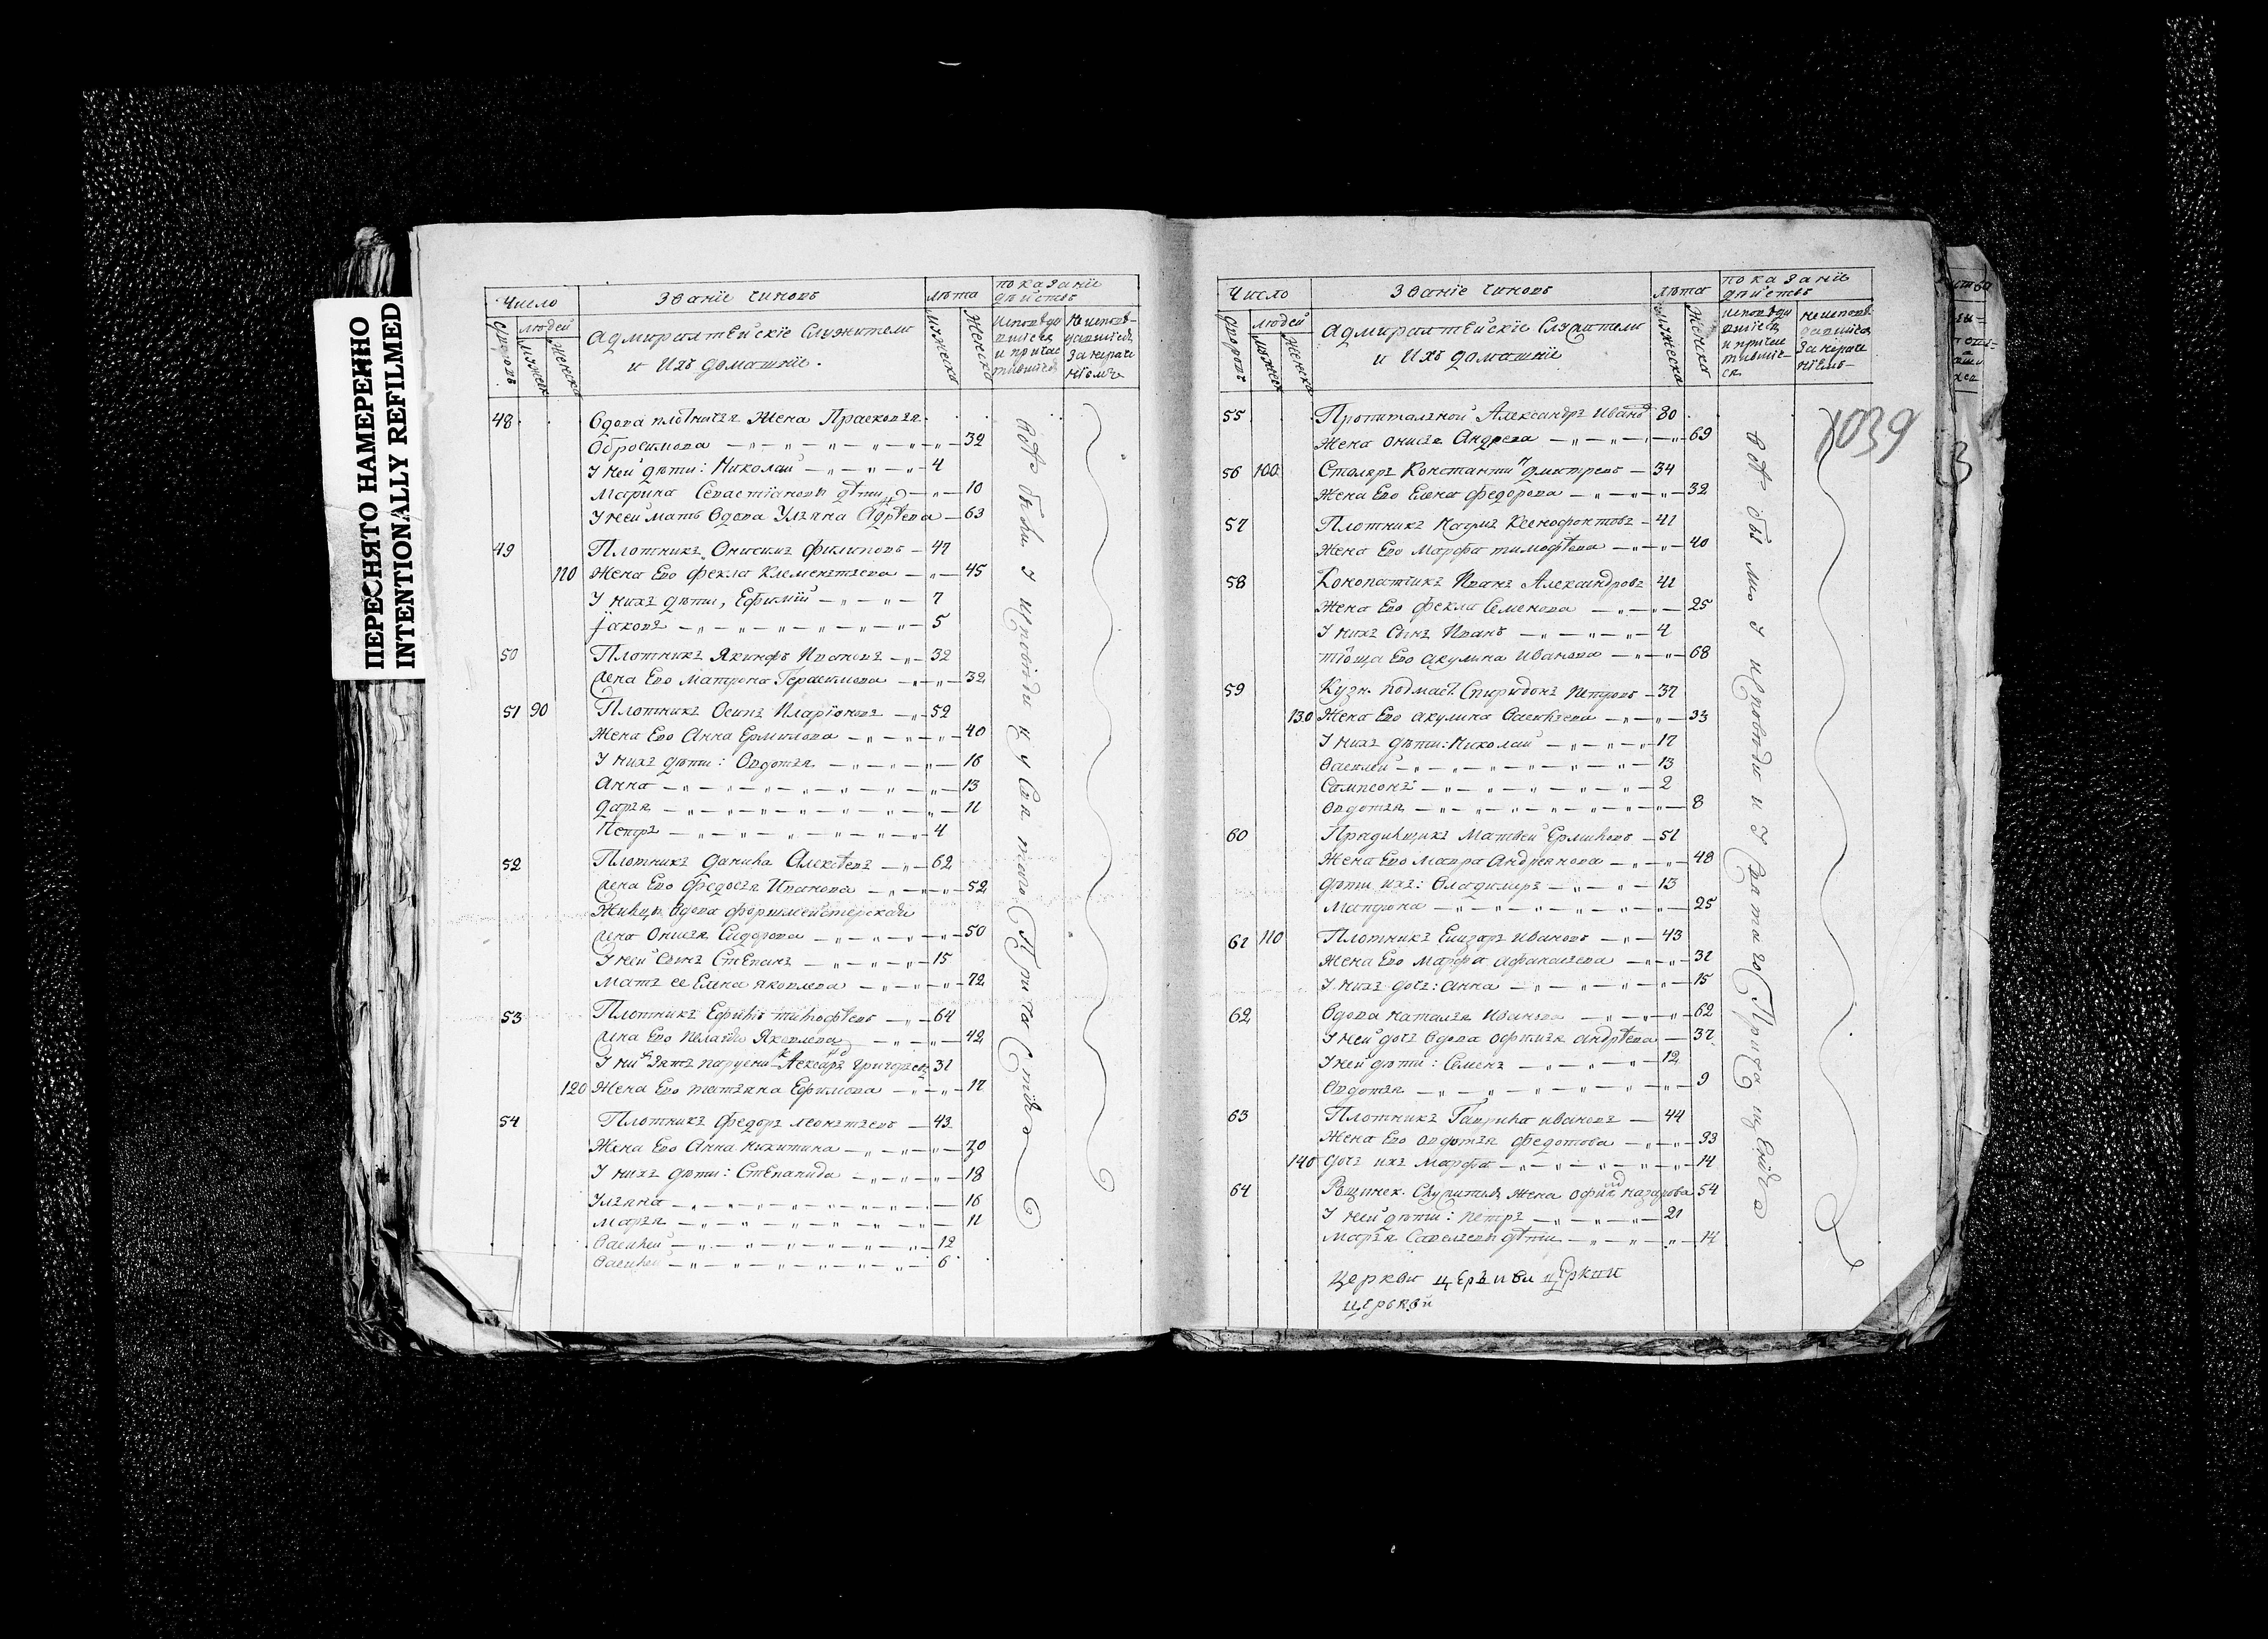 ПЕРЕСНЯТО НАМЕРЕННО
INTENTIONALLY REFILMED
Число Званїе Чиновъ лѣта показанїе
дѣйствъ
людей
дворовъ мужеск женска
Адмиралтейскїе Служители
и Ихъ домашнїе.
мужеска женска
исповѣдавшїеся и причастившїеся
не исповѣдавшїеся за нерачнїемъ
48 Вдова плотничья жена Прасковья
Обросимова 32
У ней дѣти: Николай 4
Марина Севастїановы дѣти 10
У неи мать Вдова Ульяна 63
49 Плотникъ Онисимъ Филиповъ 47
110 Жена Ево Фекла Клементьева 45
У нихъ дѣти, Ефимїй 7
Яковъ 5
50 Плотникъ Якинфъ Ивановъ 32
жена Ево Матрона Герасимова 32
51 90 Плотникъ Осипъ Иларїоновъ 52
Жена Ево Анна Ермилова 40
У нихъ дѣти: Овдотья 16
Анна 13
Дарья 11
Петръ 4
52 Плотникъ Данила Алексѣевъ 62
жена Ево Федосья Иванова 52
Вдова форшмейстерской
жена Онисья Сидорова 50
У неи Сынъ Степанъ 15
Мать ее Елена Яковлева 72
53 Плотникъ Ефимъ Тимофѣевъ 64
жена Ево Пелагея Яковлева 42
У ни зять Григорьевъ 31
120 Жена Ево татьяна Ефимова 17
54 Плотникъ Федоръ Леонтьевъ 43
Жена Ево Анна Никитина 30
У нихъ дѣти: Степанида 18
Ульяна 16
Марья 11
Василей 12
Василей 6
Число Званїе Чиновъ лѣта показанїе
дѣйствъ
людей
дворовъ мужеск женска
Адмиралтейскїе Служители
и Ихъ домашнїе
мужеска женска
исповѣдавшїеся и причастившїеся
не исповѣдавшїеся за нерачнїемъ
1039
3
55 Пропитальной Александръ Ивановъ 80
Жена Онисья Андрева 69
56 100 Столяръ Константинъ Дмитревъ 34
Жена Ево Елена Федорова 32
57 Плотникъ Наумъ Ксенофонтовъ 41
Жена Ево Марфа тимофѣева 40
58 Конопатчикъ Иванъ Александровъ 41
Жена Ево Фекла Семенова 25
У нихъ Сынъ Иванъ 4
тїоща Ево акулина Иванова 68
59 Кузн. подмаст. Спиридонъ Петровъ 37
130 Жена Ево акулина Васильева 33
У нихъ дѣти: Николай 17
Василей 13
Сампсонъ 2
Овдотья 8
60 Прядильщикъ Матвей Ермиловъ 51
Жена Ево Мавра Андреянова 48
дѣти ихъ: Владимиръ 13
Матрона 25
61 110 Плотникъ Елизаръ Ивановъ 43
Жена Ево Марфа Афанасьева 31
У нихъ дочь: Анна 15
62 Вдова наталья Иванова 62
У ней дочь Вдова Офимья андрѣева 37
У ней дѣти: Семенъ 12
Овдотья 9
63 Плотникъ Гаврила ивановъ 44
Жена Ево овдотья федотова 33
140 дочь ихъ Марфа 14
64 жена назарова 54
У ней дѣти: петръ 21
Марья Савельевы дѣти 14
Церкви
церькви